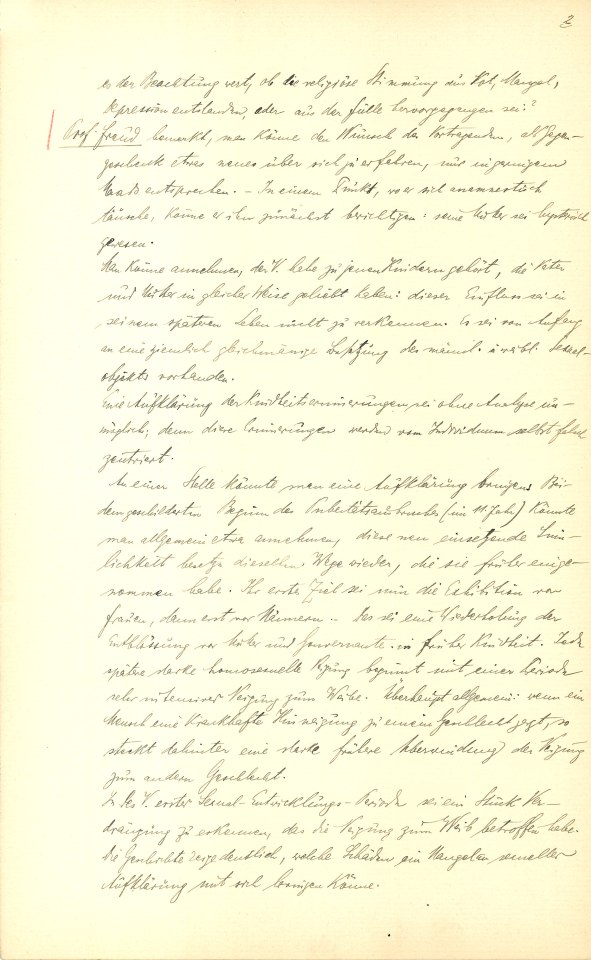 2
es der Beachtung wert, ob die religiöse Stimmung aus Not, Mangel,
Depression entstanden, oder aus der Fülle hervorgegangen sei?
Prof. Freud bemerkt, man könne den Wunsch des Vortragenden, als Gegen-
geschenk etwas neues über sich zu erfahren, nur in geringem
Maass entsprechen. – In einem Punkt, wo er sich
täusche, könne er ihn zunächst berichtigen: seine Mutter sei hysterisch
gewesen.
Man könne annehmen, der V. habe zu jenen Kindern gehört, die Vater
und Mutter in gleicher Weise geliebt haben: dieser Einfluss sei in
seinem späteren Leben nicht zu verkennen. Es sei von Anfang
an eine ziemlich gleichmässige des männl. u weibl. Sexual-
objekts vorhanden.
Eine Aufklärung der Kindheitserinnerungen sei ohne Analyse un-
möglich; denn diese Erinnerungen werden vom Individuum selbst falsch
zentriert.
An einer Stelle könnte man eine Aufklärung bringen: Bei
dem geschilderten Beginn des Pubertätsausbruches (im 11. Jahr) könnte
man allgemein etwa annehmen, diese neu einsetzende Sinn-
lichkeit benutze dieselben Wege wieder, die sie früher einge-
nommen habe. Ihr erstes Ziel sei nun die Exhibition vor
Frauen, dann erst vor Männern. – Das sei eine Wiederholung der
Entblössung vor Mutter und Gouvernante in früher Kindheit. Jede
spätere starke homosexuelle Neigung beginnt mit einer Periode
sehr intensiver Neigung zum Weibe. Überhaupt allgemein: wenn ein
Mensch eine krankhafte Hinneigung zu einem Geschlecht zeigt, so
steckt dahinter eine starke frühere Überwindung der Neigung
zum andern Geschlecht.
In des V. erster Sexual-Entwicklungs-Periode sei ein Stück Ver-
drängung zu erkennen, das die Neigung zum Weib betroffen habe.
Die Geschichte zeige deutlich, welche Schäden ein Mangel an sexueller
Aufklärung mit sich bringen könne.